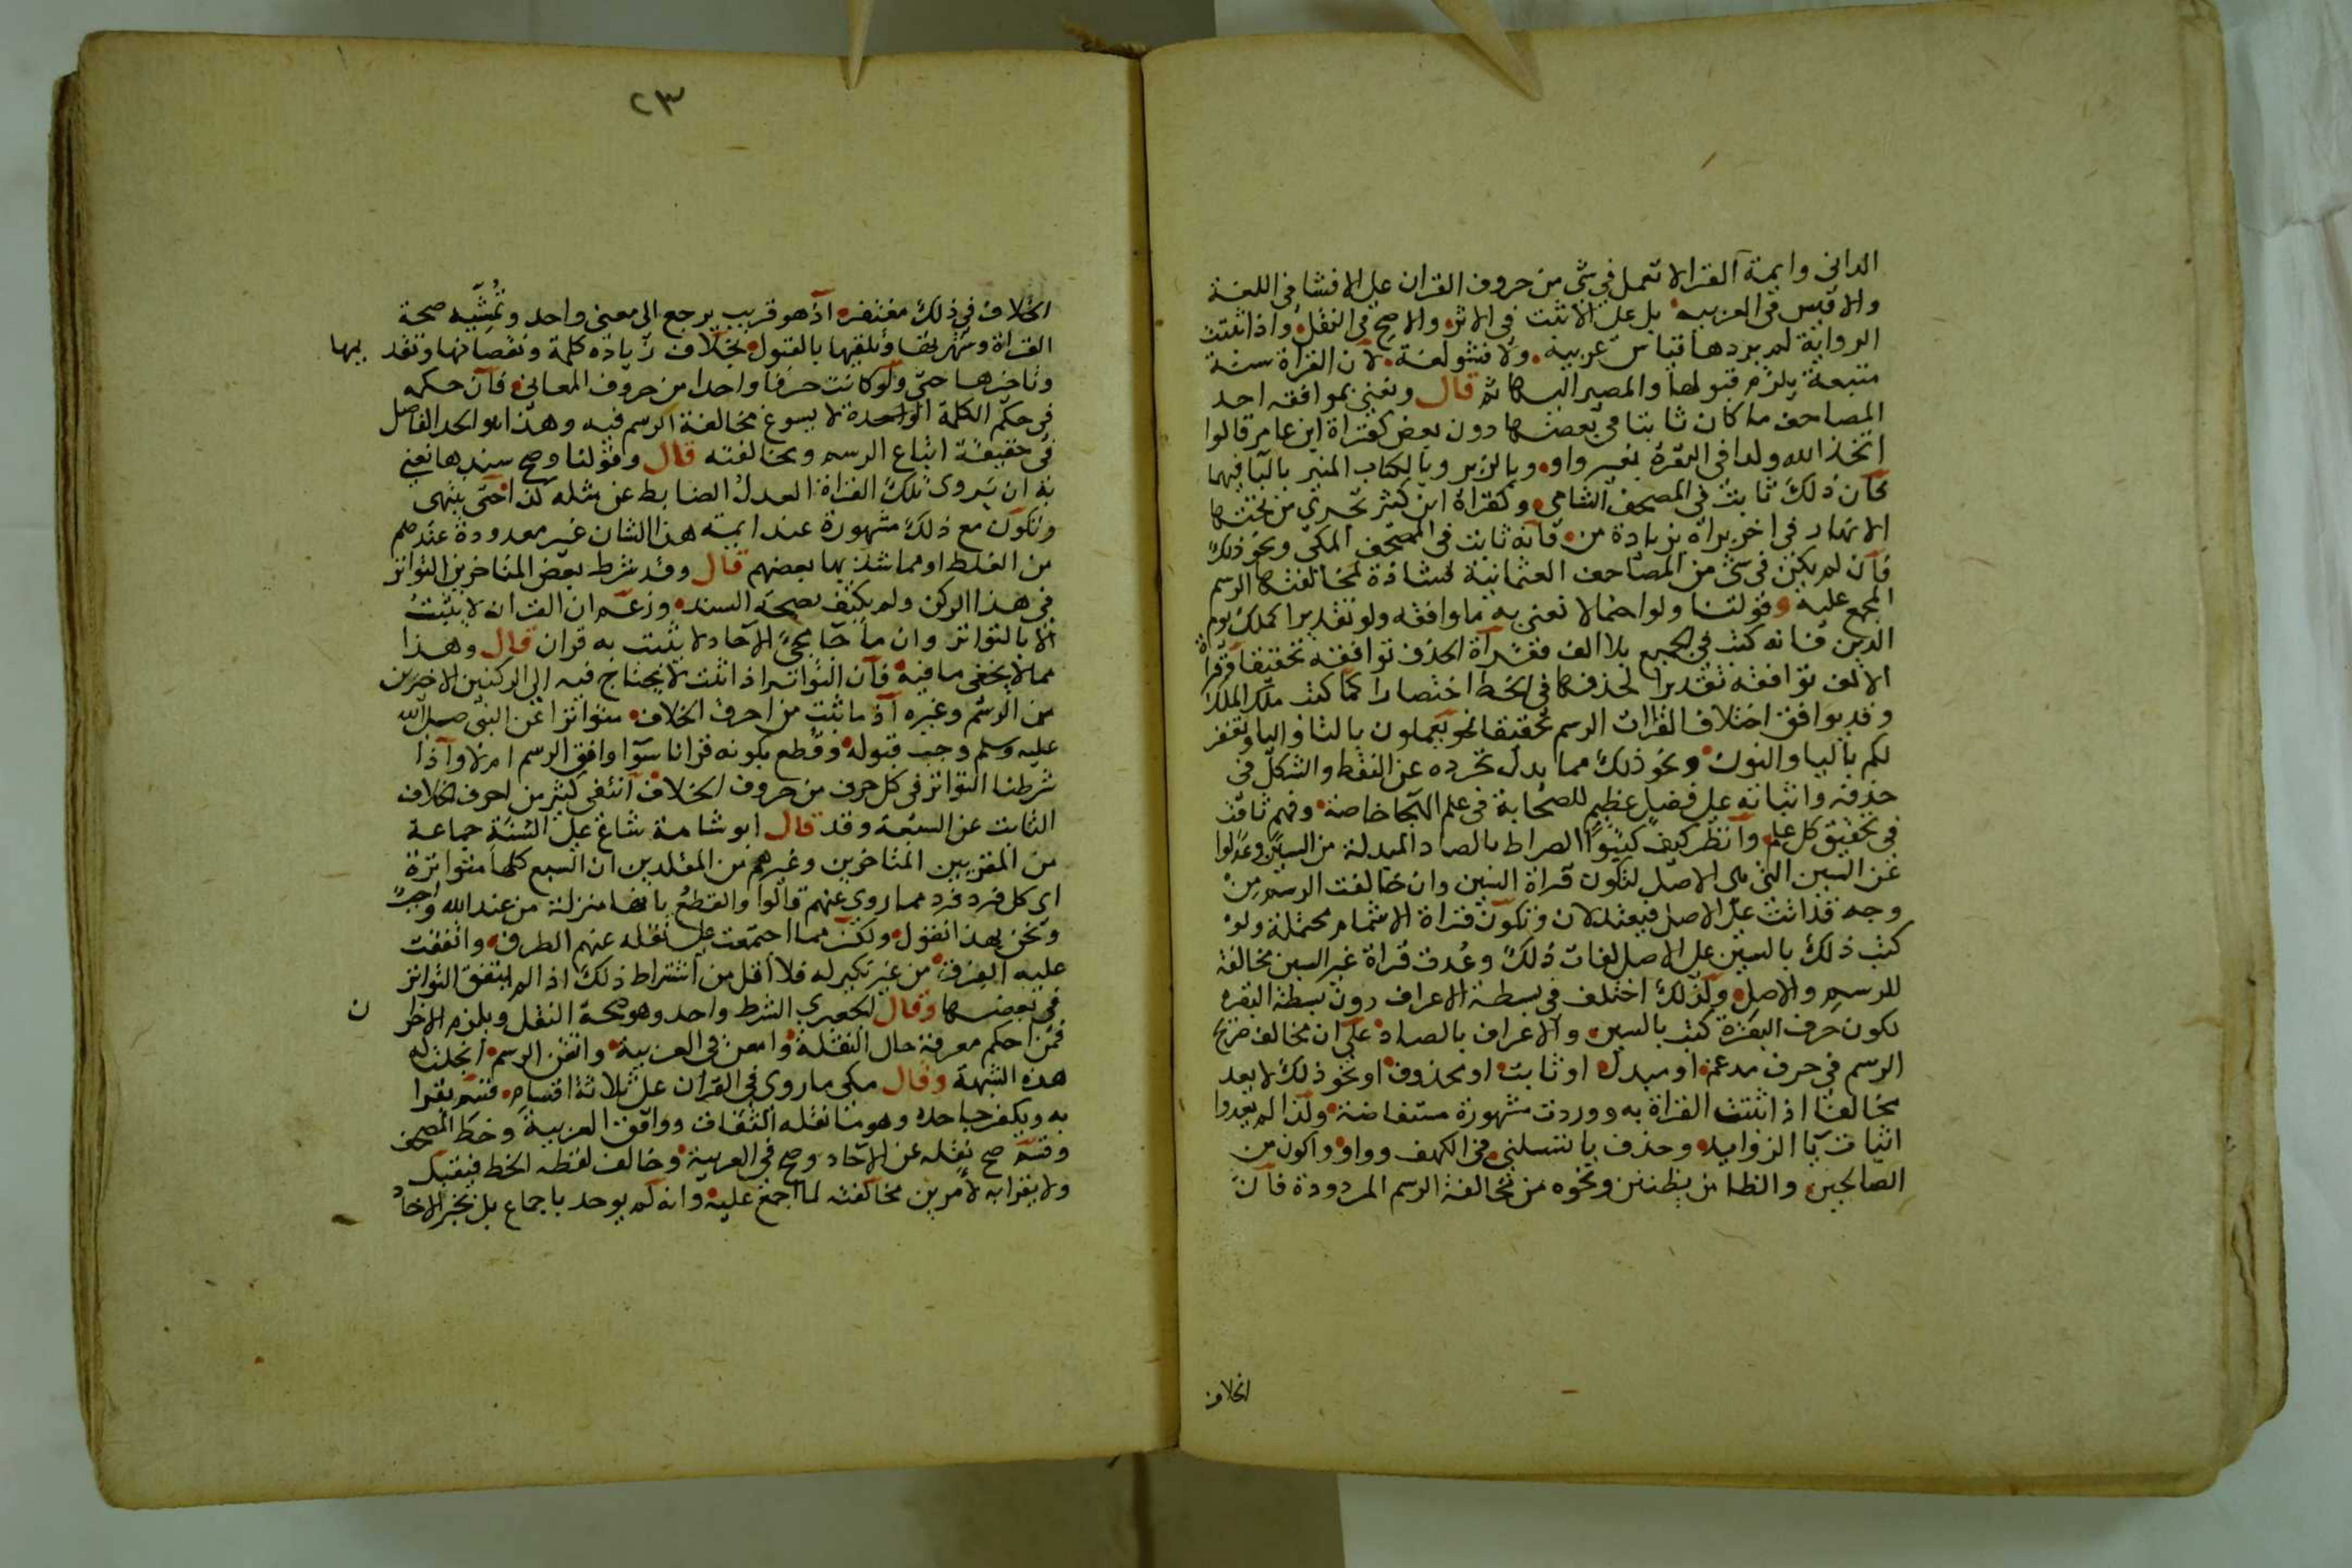 الداني وايمة القرا لا تعمل في شي من حروف القران على الافشا في اللغة
والاقيس في العربية بل على الاثبت في الاثر والاصح في النقل واذا ثبتت
الرواية لم يردها قياس عربية ولا فشو لغة لان القراة سنة
متبعة يلزم قبولها والمصير اليها ثم قال ونعني بموافقه احد
المصاحف ما كان ثابتا في بعضها دون بعض كقراة ابن عامر قالوا
اتخذ الله ولدا في البقرة بغير واو وبالزبر وبالكتاب المنير بالبا فيهما
فان ذلك ثابت في المصحف الشامي وكقراة ابن كثير تجري من تحتها
الانهار في اخر براه بزيادة من فانه ثابت في المصحف المكي ونحو ذلك
فان لم يكن في شي من المصاحف العثمانية فشاذة لمخالفتها الرسم
المجمع عليه وقولنا ولو احتمالا نعني به ما وافقه ولو تقديرا كملك يوم
الدين فانه كتب في الجميع بلا الف فقراة الحذف توافقه تحقيقا وقراة
الالف توافقه تقديرا لحذفها في الخط اختصارا كما كتب ملك الملك
وقد يوافق اختلاف القراات الرسم تحقيقا نحو يعملون بالتا واليا ويغفر
لكم باليا والنون ونحو ذلك مما يدل تجرده عن النقط والشكل في
حذفه واثباته على فضل عظيم للصحابة في علم الهجا خاصة وفهم ثاقب
في تحقيق كل علم وانظر كيف كتبوا الصراط بالصاد المبدلة من السين وعدلوا
عن السين التي هي الاصل لتكون قراة السين وان خالفت الرسم من
وجه قد اتت على الاصل فيعتدلان وتكون قراة الاشمام محتملة ولو
كتب ذلك بالسين على الاصل لفات ذلك وعدت قراة غير السين مخالفة
للرسم والاصل ولذلك اختلف في بسطة الاعراف دون بسطة البقره
لكون حرف البقرة كتب بالسين والاعراف بالصاد على ان مخالف صريح
الرسم في حرف مدغم او مبدل او ثابت او محذوف او نحو ذلك لا يعد
مخالفا اذا ثبتت القراة به ووردت مشهورة مستفاضة ولذا لم يعدوا
اثبات يا الزوايد وحذف يا تسلني في الكهف وواو واكون من
الصالحين والظا من بظنين ونحوه من مخالفة الرسم المردودة فان
الخلاف
٢٣
الخلاف في ذلك مغتفر اذ هو قريب يرجع الى معنى واحد وتمشيه صحة
القراة وشهرتها وتلقيها بالقبول بخلاف زيادة كلمة ونقصانها وتقديمها
وتاخيرها حتى ولو كانت حرفا واحدا من حروف المعاني فان حكمه
في حكم الكلمة الواحدة لا يسوغ مخالفة الرسم فيه وهذا هو الحد الفاصل
في حقيقة اتباع الرسم ومخالفته قال وقولنا وصح سندها نعني
به ان يروى تلك القراة العدل الضابط عن مثله كذا حتى ينتهى
وتكون مع ذلك مشهورة عند ايمة هذا الشان غير معدودة عندهم
من الغلط او مما شذ بها بعضهم قال وقد شرط بعض المتاخرين التواتر
في هذا الركن ولم يكتف بصحة السند وزعم ان القران لا يثبت
الا بالتواتر وان ما جا مجي الاحاد لا يثبت به قران قال وهذا
مما لا يخفى ما فيه فان التواتر اذا ثبت لا يحتاج فيه الى الركنين الاخيرين
من الرسم وغيره اذ ما ثبت من احرف الخلاف متواترا عن النبي صلى الله
عليه وسلم وجب قبوله وقطع بكونه قرانا سوا وافق الرسم ام لا واذا
شرطنا التواتر في كل حرف من حروف الخلاف انتفى كثير من احرف الخلاف
الثابت عن السبعة وقد قال ابو شامة شاع على السنة جماعة
من المقريين المتاخرين وغيرهم من المقلدين ان السبع كلها متواترة
اى كل فرد فرد مما روى عنهم قالوا والقطع بانها منزلة من عند الله واجب
ونحن بهذا نقول ولكن مما اجتمعت على نقله عنهم الطرق واتفقت
عليه الفرقة من غير نكير له فلا اقل من اشتراط ذلك اذا لم يتفق التواتر
في بعضها وقال الجعبري الشرط واحد وهو صحة النقل ويلزم الاخران
فمن احكم معرفة حال النقلة وامعن في العربية واتقن الرسم انجلت له
هذه الشبهة وقال مكى ما روى في القران على ثلاثة اقسام قسم يقرا
به ويكفر جاحده وهو ما نقله الثقات ووافق العربية وخط المصحف
وقسم صح نقله عن الاحاد وصح في العربية وخالف لفظه الخط فيقبل
ولا يقرا به لامرين مخالفته لما اجمع عليه وانه لم يوخد باجماع بل بخبر الاحاد